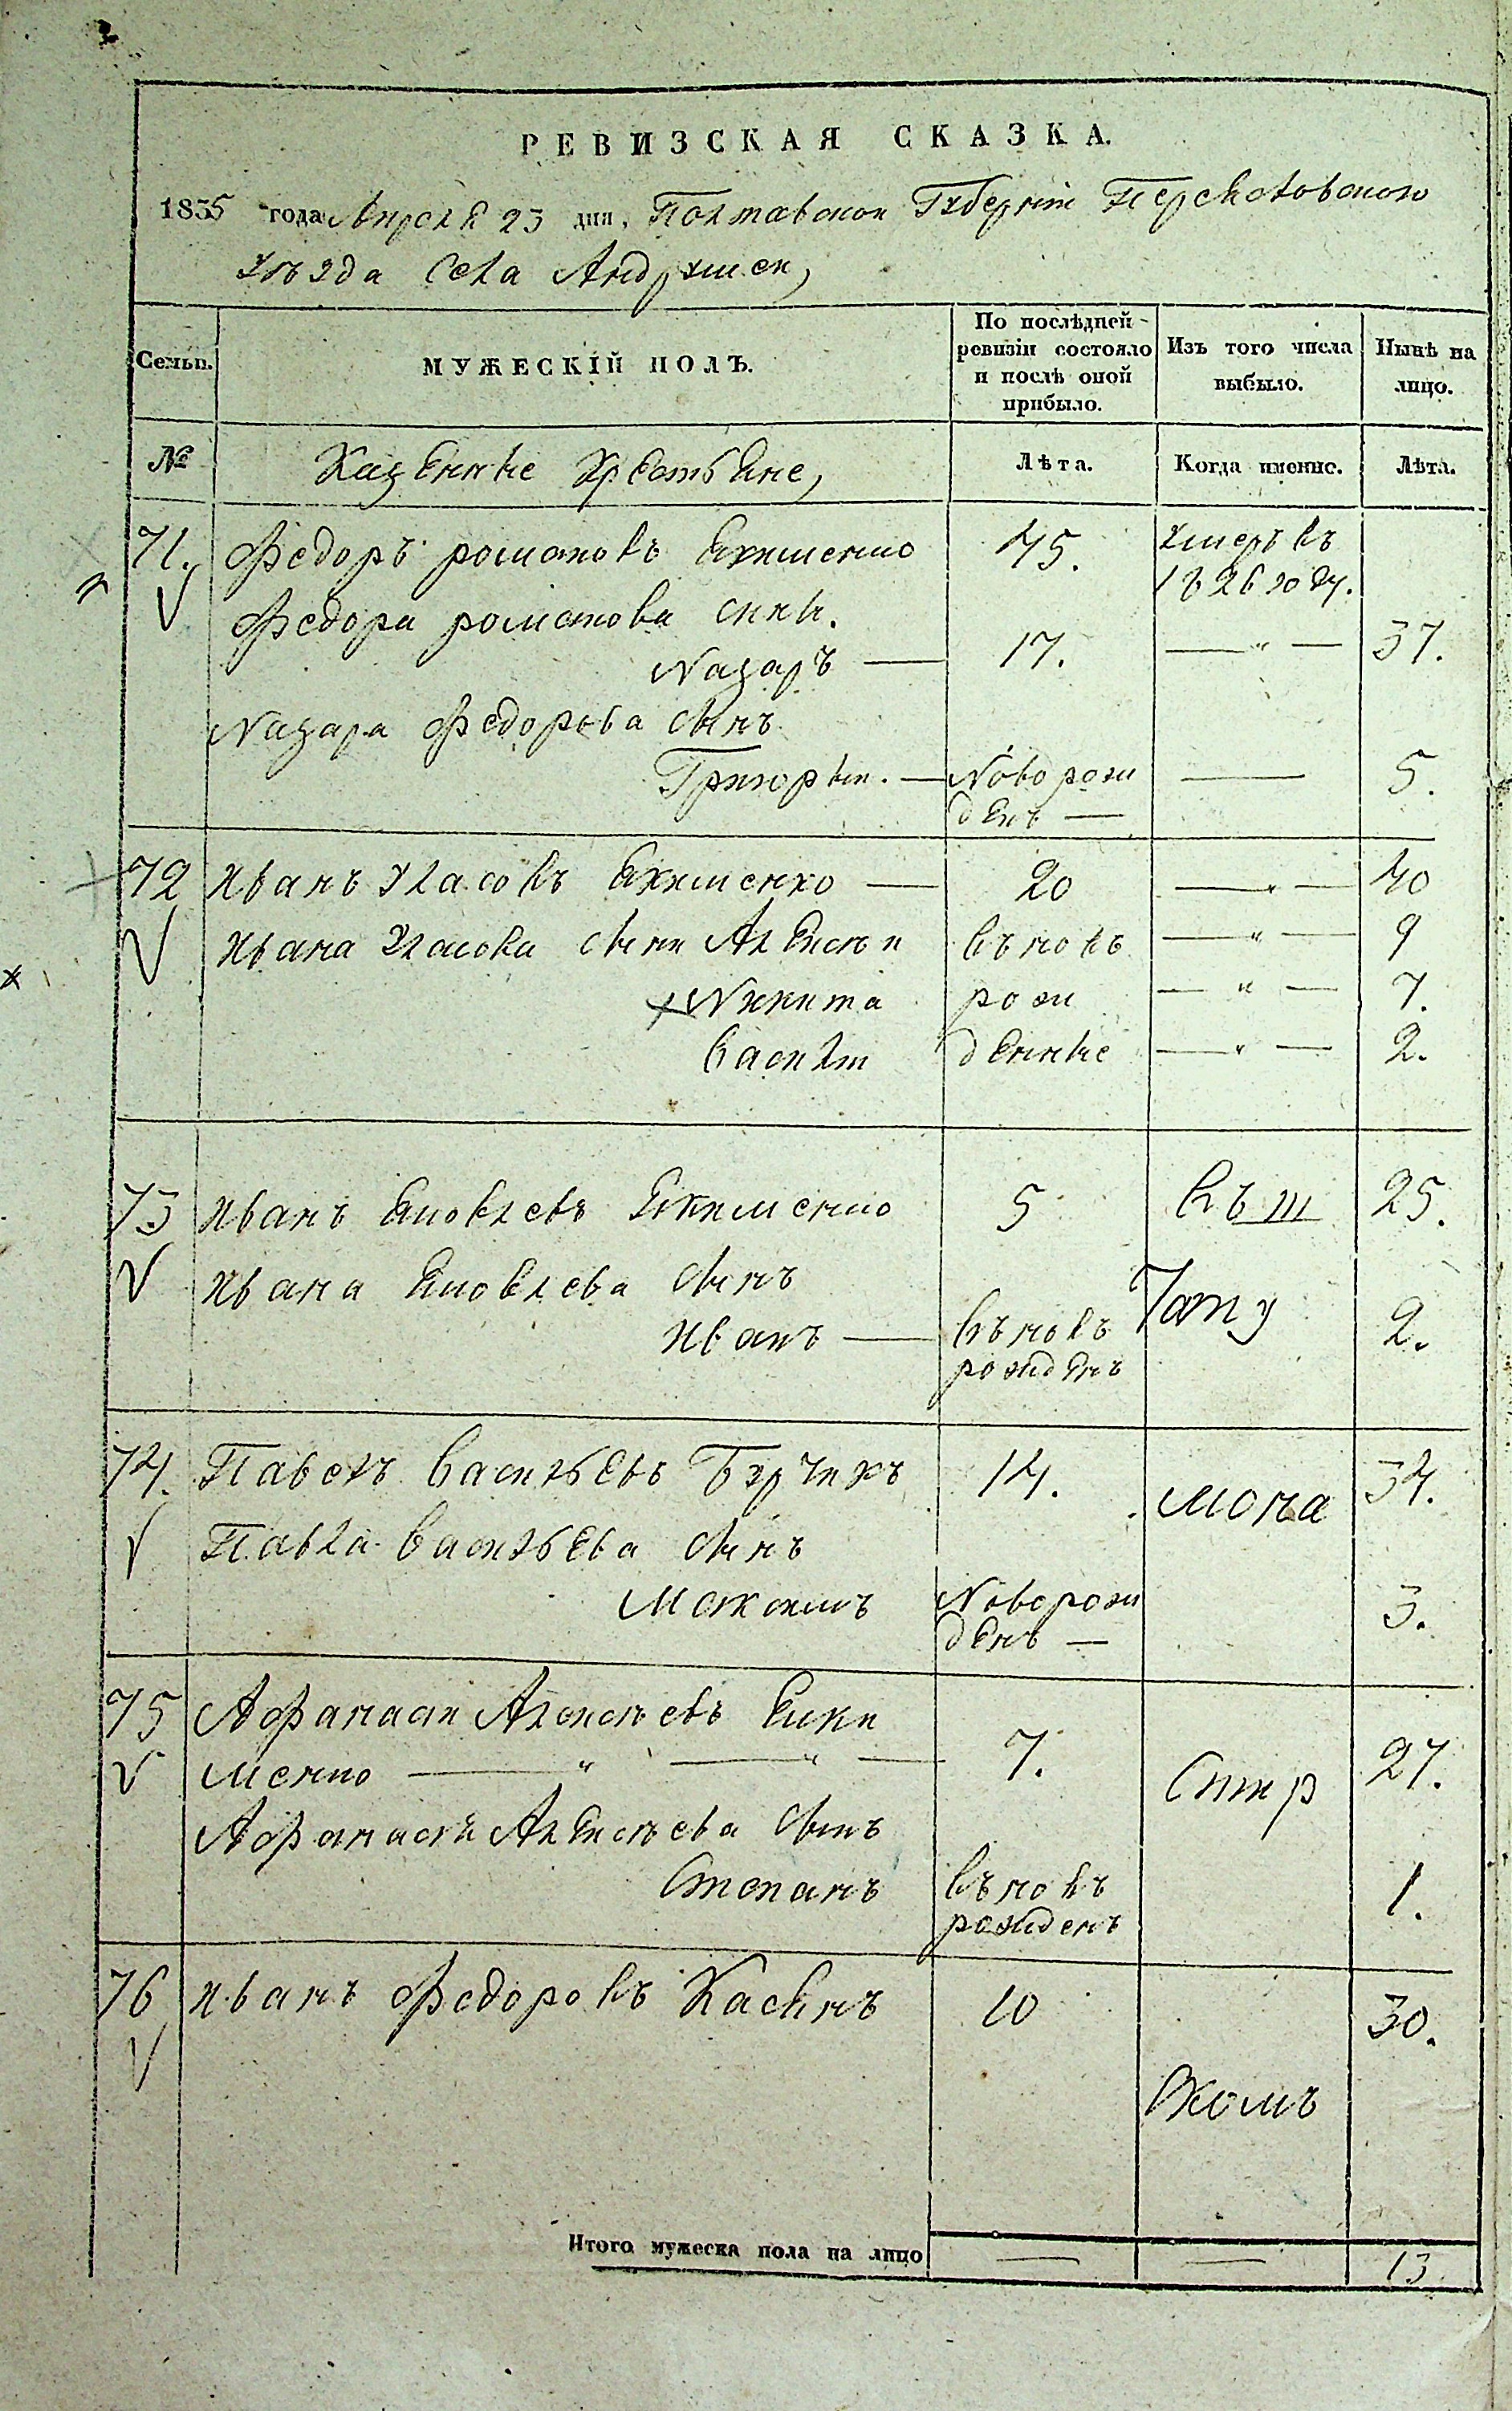 РЕВИЗСКАЯ СКАЗКА.
1835 года Апреля 23 дня, Полтавской Губернiи Переяславского
уѣзда Села Андрушек,
Семьи. МУЖЕСКІЙ ПОЛЪ. По послѣдней ревизіи состояло и послѣ оной прибыло. Изъ того числа выбыло. Нынѣ на лицо.
№ Казенные Крестьяне, Лѣта. Когда именно. Лѣта.
71. Федоръ романовъ Якименко 45. умеръ въ
1826 году.
Федора романова сины.
Назаръ — 17. — " — 37.
Назара Федорова сынъ
Григорый. — Новорож — 5.
денъ —
72 Иванъ Уласовъ Якименко — 20 — " — 40
Ивана Уласова сыни Алексѣй въновъ — " — 9
Никита рож — " — 7.
Василiй денные — " — 2.
73 Иванъ Яковлевъ Якименко 5 Къ ш 25.
Ивана Яковлева сынъ Тату
Иванъ — въновъ 2.
рожденъ
74. Павелъ Васильевъ Бурчикъ 14. мона 34.
Павла Васильева сынъ
Максимъ Новорож 3.
денъ —
75 Афанасий Алексѣевъ Яки
менко — " — " — 7. 27.
Афанасия Алексѣева сынъ
Степанъ въновъ 1.
рожденъ
76 Иванъ Федоровъ Касянъ 10 30.
Итого мужеска пола на лицо — — 13